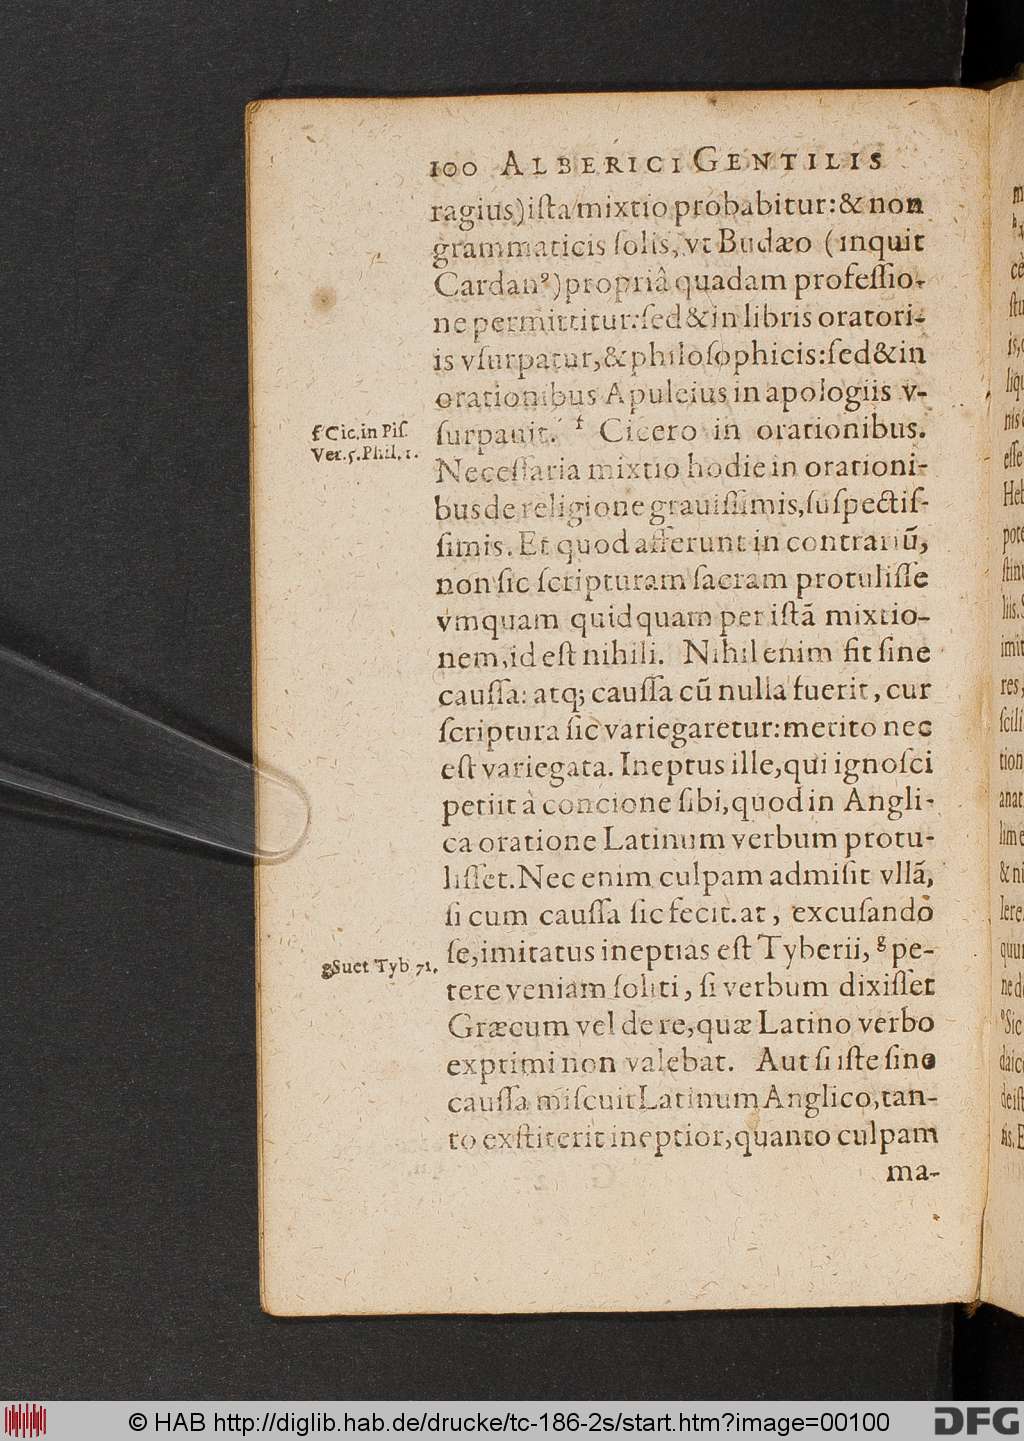 100 ALBERICI GENTILIS
ragius) iſta mixtio probabitur: & non
grammaticis ſolis, vt Budæo (inquit
Cardanꝰ) propriâ quadam profeſſio-
ne permittitur: ſed & in libris oratori-
is vſurpatur, & philoſophicis: ſed & in
orationibus Apuleius in apologiis v-
ſurpauit. f Cicero in orationibus.
f Cic. in Piſ.
Ver. 5. Phil. 1.
Neceſſaria mixtio hodie in orationi-
bus de religione grauiſſimis, ſuſpectiſ-
ſimis. Et quod afferunt in contrariũ,
non ſic ſcripturam ſacram protuliſſe
vmquam quidquam per iſtã mixtio-
nem, id eſt nihili. Nihil enim fit ſine
cauſſa: atq; cauſſa cũ nulla fuerit, cur
ſcriptura ſic variegaretur: merito nec
eſt variegata. Ineptus ille, qui ignoſci
petiit à concione ſibi, quod in Angli-
ca oratione Latinum verbum protu-
liſſet. Nec enim culpam admiſit vllã,
ſi cum cauſſa ſic fecit. at, excuſando
ſe, imitatus ineptias eſt Tyberii, g pe-
g Suet Tyb 71.
tere veniam ſoliti, ſi verbum dixiſſet
Græcum vel de re, quæ Latino verbo
exprimi non valebat. Aut ſi iſte ſine
cauſſa miſcuit Latinum Anglico, tan-
to exſtiterit ineptior, quanto culpam
ma-
© HAB http://diglib.hab.de/drucke/tc-186-2s/start.htm?image=00100
DFG